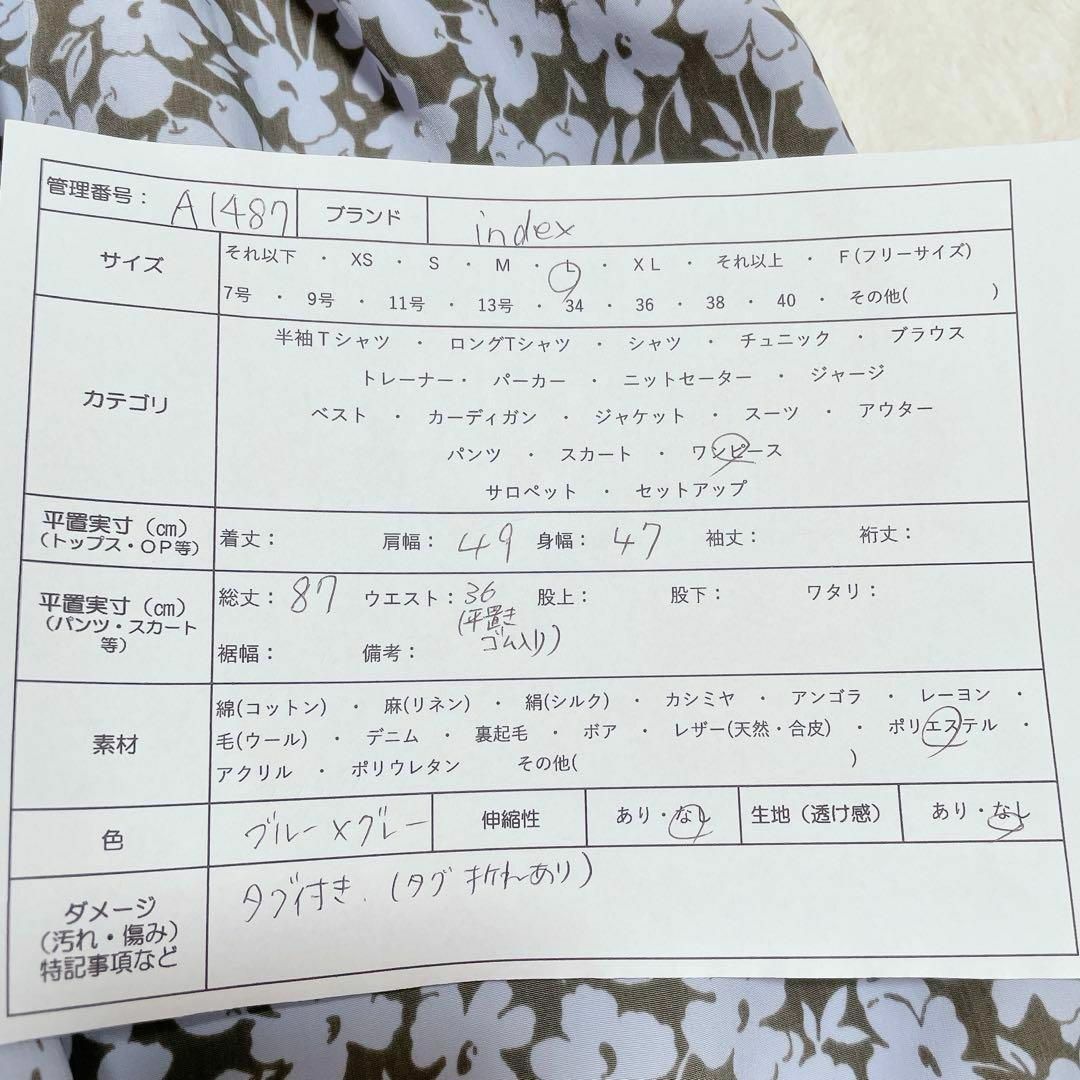 管理番号： A1487 ブランド index
サイズ
それ以下 ・ XS ・ S ・ M ・ L ・ XL ・ それ以上 ・ F(フリーサイズ)
7号 ・ 9号 ・ 11号 ・ 13号 ・ 34 ・ 36 ・ 38 ・ 40 ・ その他( )
カテゴリ
半袖Tシャツ ・ ロングTシャツ ・ シャツ ・ チュニック ・ ブラウス
トレーナー・ パーカー ・ ニットセーター ・ ジャージ
ベスト ・ カーディガン ・ ジャケット ・ スーツ ・ アウター
パンツ ・ スカート ・ ワンピース
サロペット ・ セットアップ
平置実寸（㎝）
（トップス・OP等）
着丈： 肩幅： 49 身幅： 47 袖丈： 裄丈：
平置実寸（㎝）
（パンツ・スカート
等）
総丈： 87 ウエスト： 36 股上： 股下： ワタリ：
(平置き
ゴム入り)
裾幅： 備考：
素材
綿(コットン) ・ 麻(リネン) ・ 絹(シルク) ・ カシミヤ ・ アンゴラ ・ レーヨン ・
毛(ウール) ・ デニム ・ 裏起毛 ・ ボア ・ レザー(天然・合皮) ・ ポリエステル ・
アクリル ・ ポリウレタン その他( )
色 ブルー×グレー 伸縮性 あり・なし 生地（透け感） あり・なし
ダメージ
（汚れ・傷み）
特記事項など
タグ付き.(タグ折れあり)